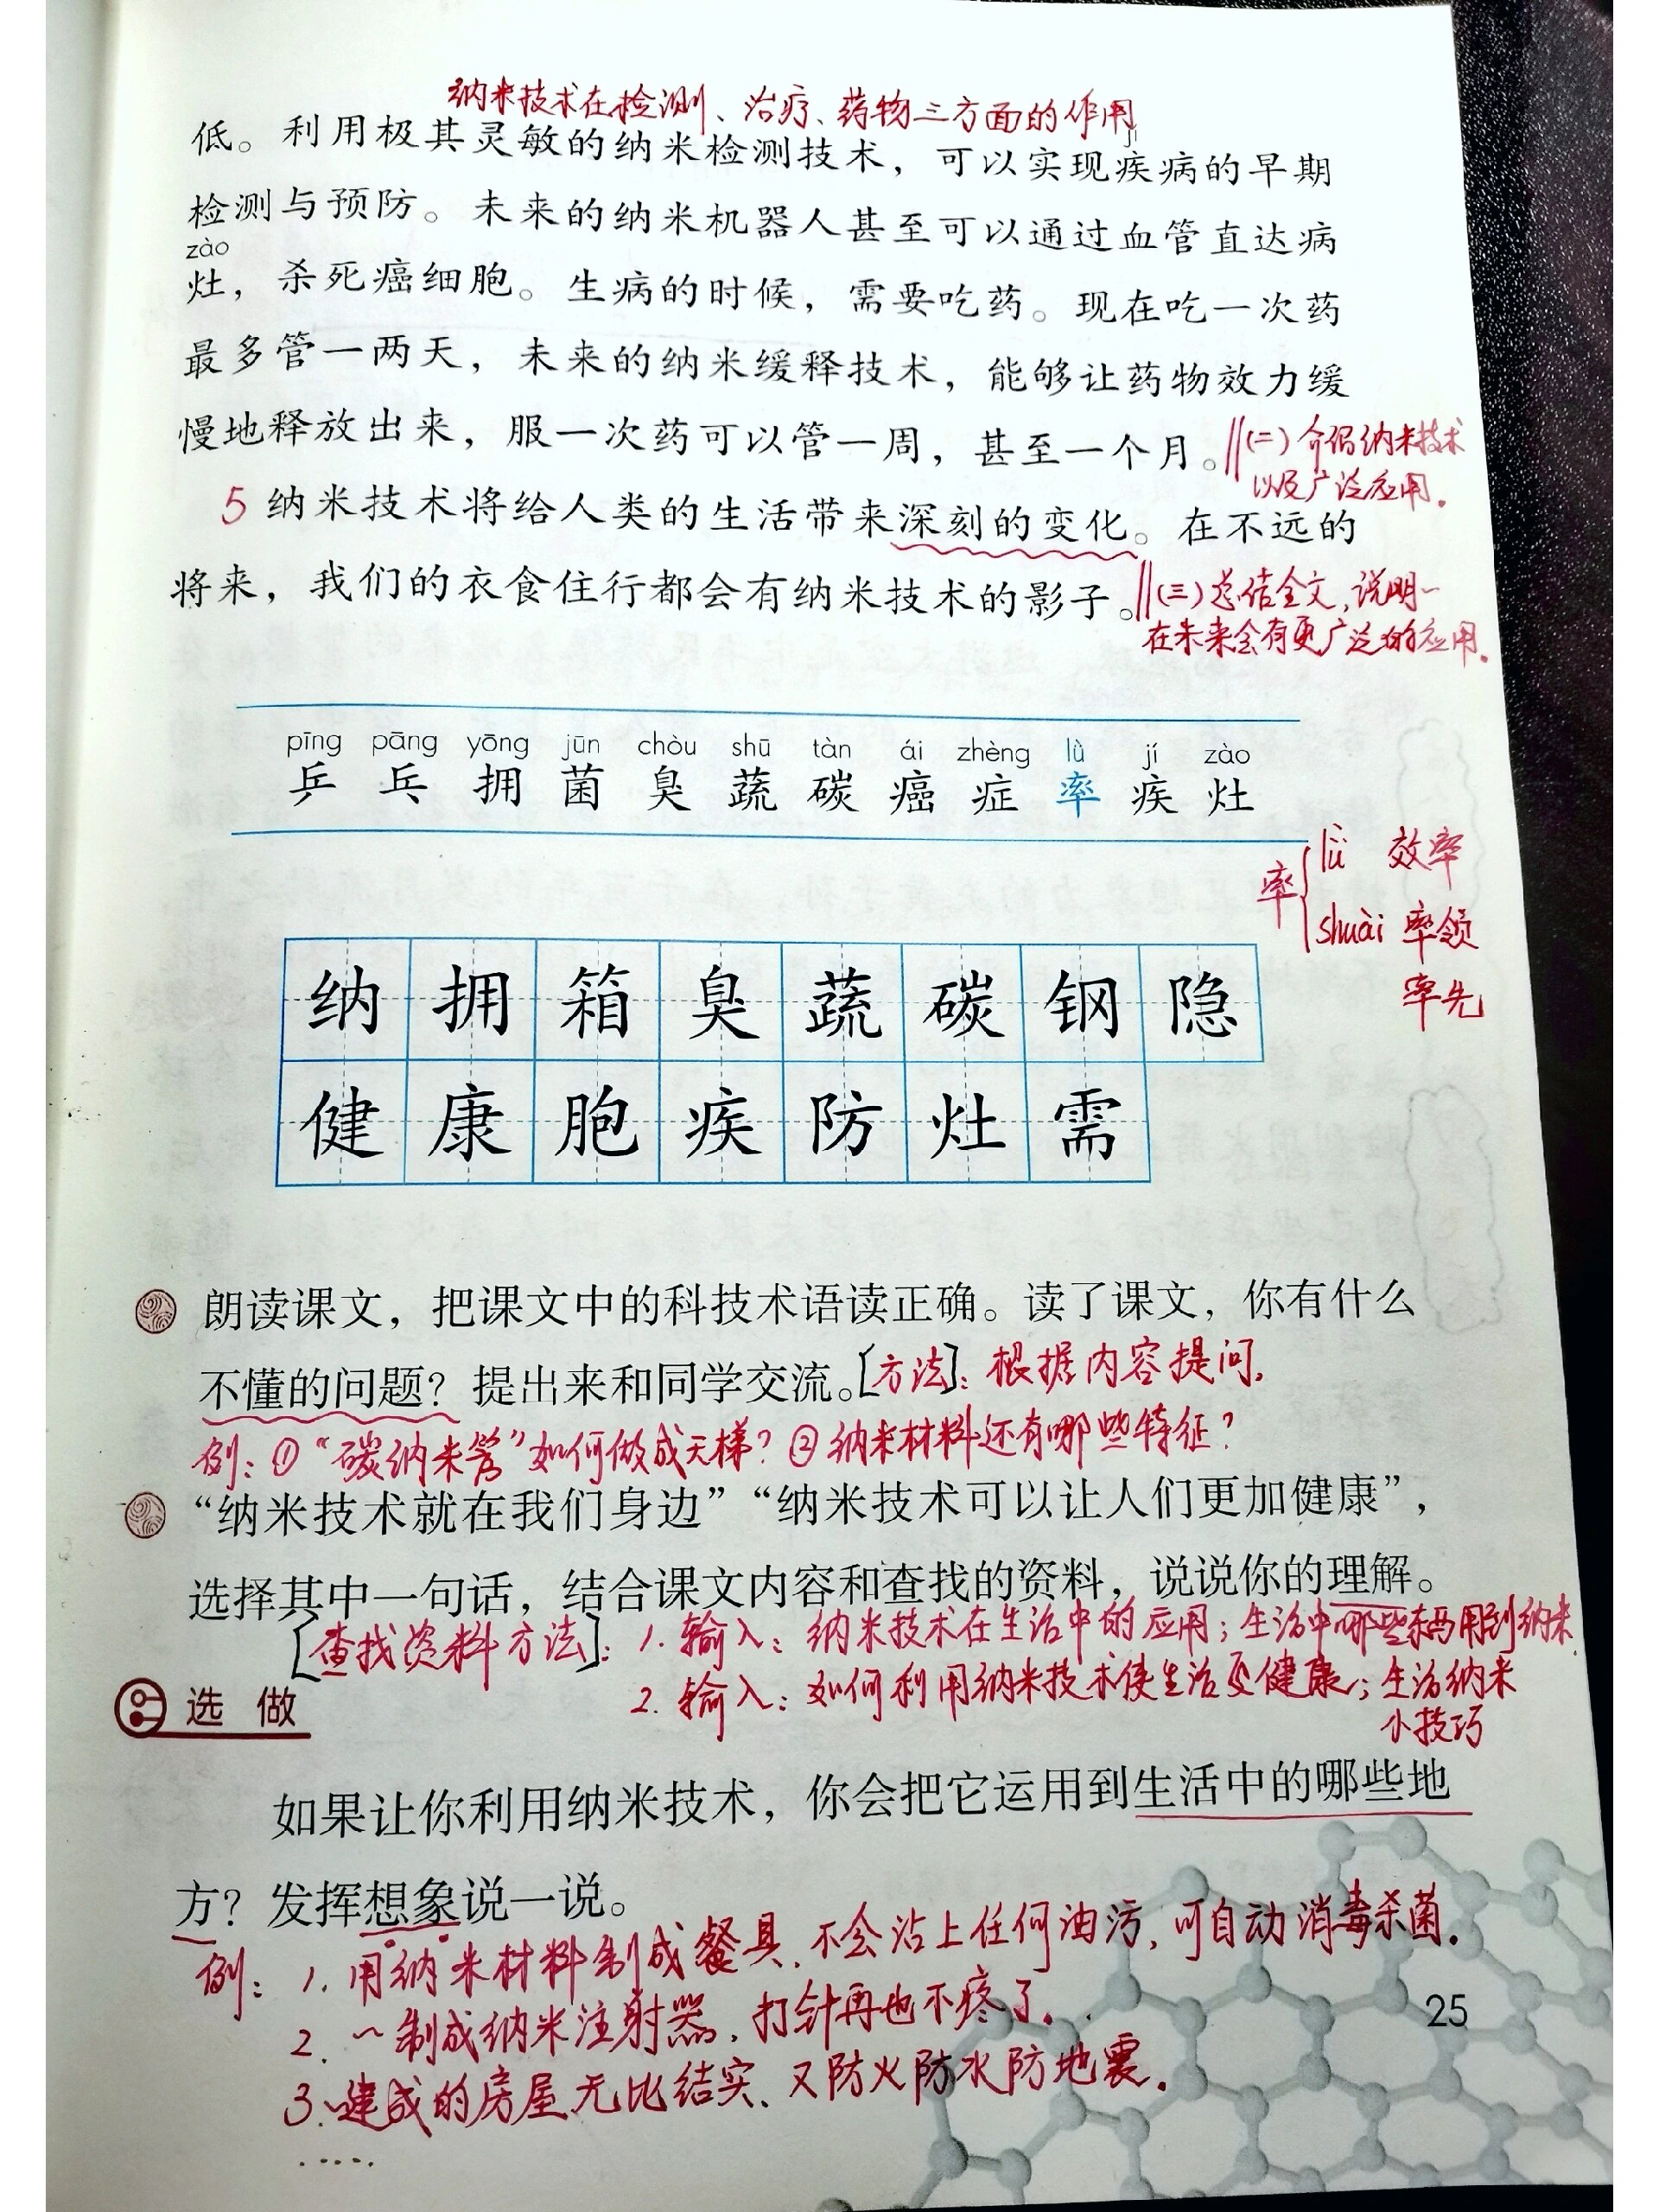 纳米技术在检测、治疗、药物三方面的作用
低。利用极其灵敏的纳米检测技术，可以实现疾病的早期
jí
检测与预防。未来的纳米机器人甚至可以通过血管直达病
zào
灶，杀死癌细胞。生病的时候，需要吃药。现在吃一次药
最多管一两天，未来的纳米缓释技术，能够让药物效力缓
慢地释放出来，服一次药可以管一周，甚至一个月。
(二)介绍纳米技术
以及广泛应用。
5 纳米技术将给人类的生活带来深刻的变化。在不远的
将来，我们的衣食住行都会有纳米技术的影子。
(三)总结全文，说明~
在未来会有更广泛的应用。
pīng pāng yōng jūn chòu shū tàn ái zhèng lǜ jí zào
乒 乓 拥 菌 臭 蔬 碳 癌 症 率 疾 灶
率 lǜ 效率
shuài 率领
率先
纳 拥 箱 臭 蔬 碳 钢 隐
健 康 胞 疾 防 灶 需
朗读课文，把课文中的科技术语读正确。读了课文，你有什么
不懂的问题？提出来和同学交流。[方法]：根据内容提问。
例：①“碳纳米管”如何做成天梯？②纳米材料还有哪些特征？
“纳米技术就在我们身边”“纳米技术可以让人们更加健康”，
选择其中一句话，结合课文内容和查找的资料，说说你的理解。
[查找资料方法]：1. 输入：纳米技术在生活中的应用；生活中哪些东西用到纳米
2. 输入：如何利用纳米技术使生活更健康；生活纳米
小技巧
选 做
如果让你利用纳米技术，你会把它运用到生活中的哪些地
方？发挥想象说一说。
例：1. 用纳米材料制成餐具、不会沾上任何油污，可自动消毒杀菌。
2. ~制成纳米注射器，打针再也不疼了。
3. ~建成的房屋无比结实、又防火防水防地震。
……
25